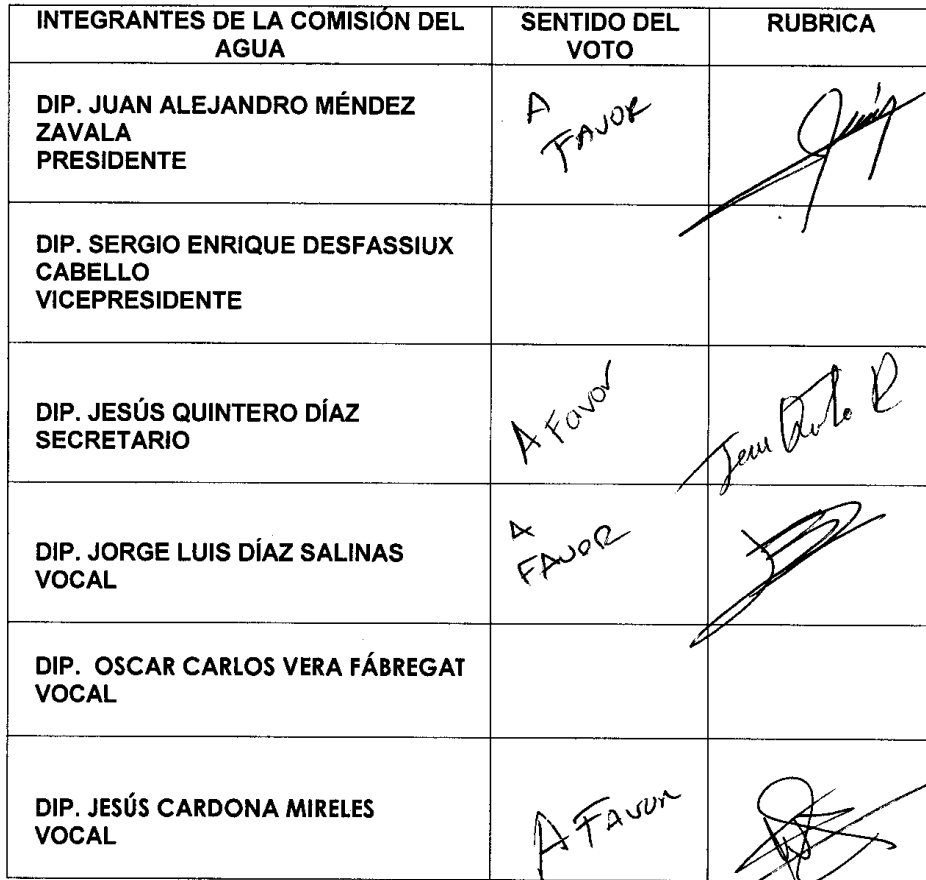 INTEGRANTES DE LA COMISIÓN DEL
AGUA
SENTIDO DEL
VOTO
RUBRICA
DIP. JUAN ALEJANDRO MÉNDEZ
ZAVALA
PRESIDENTE
A
FAVOR
DIP. SERGIO ENRIQUE DESFASSIUX
CABELLO
VICEPRESIDENTE
DIP. JESÚS QUINTERO DÍAZ
SECRETARIO
A Favor
DIP. JORGE LUIS DÍAZ SALINAS
VOCAL
A
FAVOR
DIP. OSCAR CARLOS VERA FÁBREGAT
VOCAL
DIP. JESÚS CARDONA MIRELES
VOCAL
A FAVOR